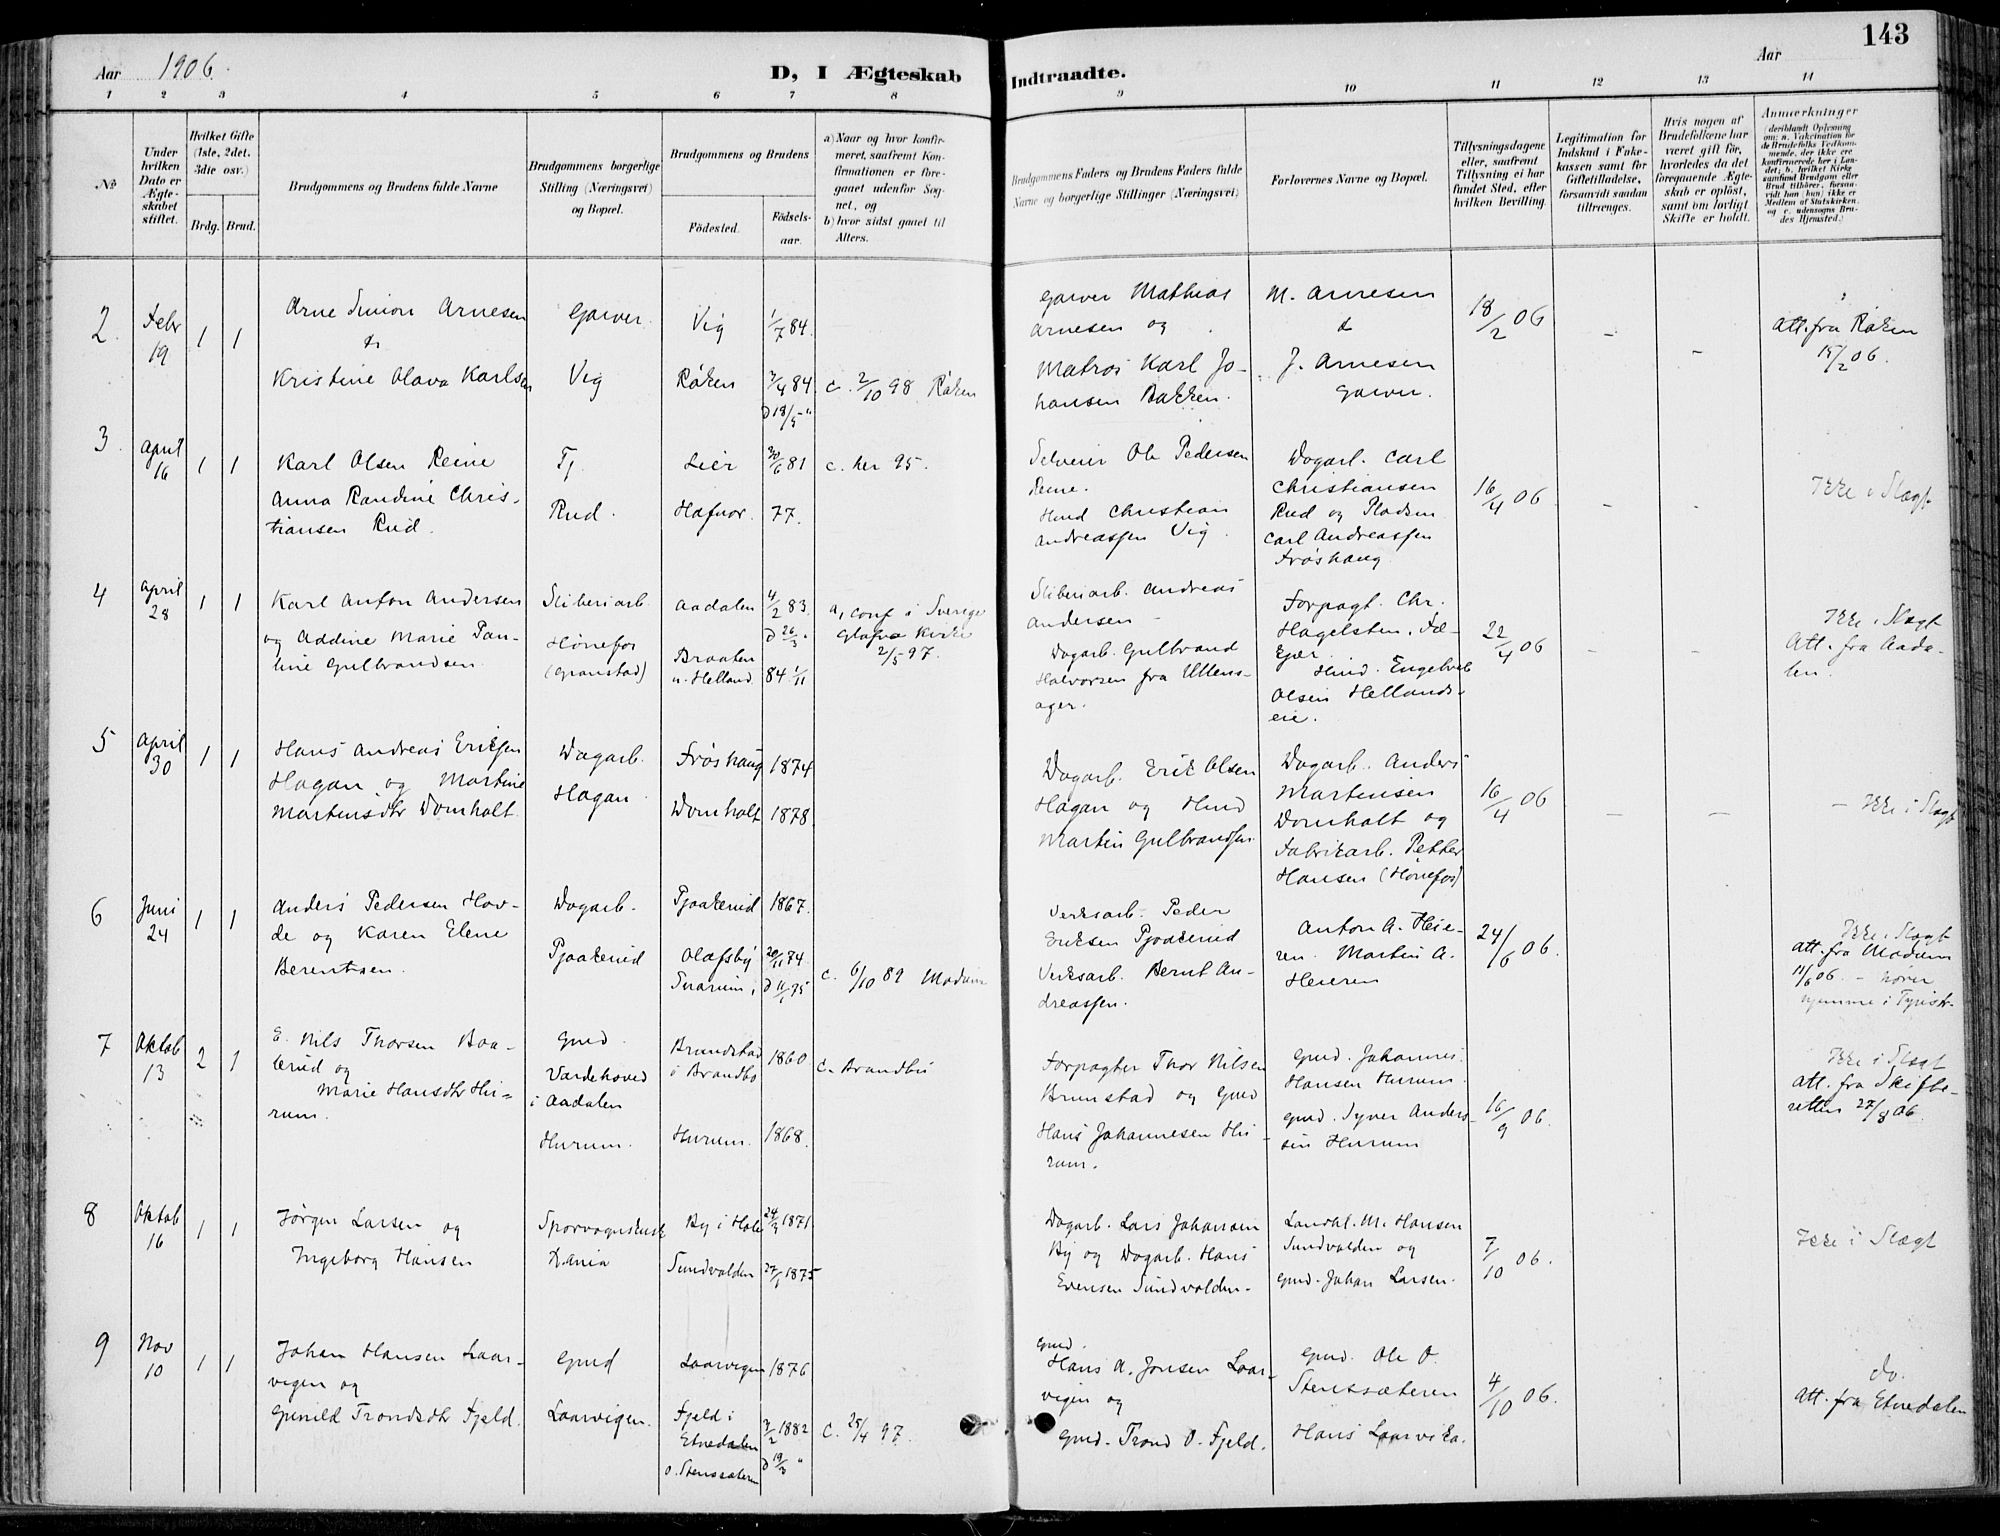 Aar 1906.
D, I Ægteskab
Indtraadte.
Aar
143
1 2 3 4 5 6 7 8 9 10 11 12 13 14
No
Under hvilken Dato er Ægteskabet stiftet.
Hvilket Gifte (1ste, 2det, 3die osv.)
Brdg. Brud.
Brudgommens og Brudens fulde Navne
Brudgommens borgerlige Stilling (Næringsvei) og Bopæl.
Brudgommens og Brudens
Fødested.
Fødsels-aar.
a) Naar og hvor konfirmeret, saafremt Konfirmationen er foregaaet udenfor Sognet, og
b) hvor sidst gaaet til Alters.
Brudgommens Faders og Brudens Faders fulde Navne og borgerlige Stillinger (Næringsvei)
Forlovernes Navne og Bopæl.
Tillysningsdagene eller, saafremt Tillysning ei har fundet Sted, efter hvilken Bevilling.
Legitimation for Indskud i Enkekassen samt for Giftetilladelse, forsaavidt saadan tiltrænges.
Hvis nogen af Brudefolkene har været gift før, hvorledes da det foregaaende Ægteskab er opløst, samt om lovligt Skifte er holdt.
Anmerkninger
(deriblandt Oplysning om: a. Vakcination for de Brudefolks Vedkommende, der ikke ere konfirmerede her i Landet; b. hvilket Kirkesamfund Brudgom eller Brud tilhører, forsaavidt han (hun) ikke er Medlem af Statskirken, og c. udensogns Brudes Hjemsted.)
2
Febr
19
1 1
Arne Simon Arnesen
&
Kristine Olava Karlsen
Garver
Vig
Vig 1/7 84.
Røken 3/4 84
D 18/5 "
c. 2/10 98 Røken
Garver Mathias
Arnesen og
Matros Karl Jo-
hansen Bakken.
M. Arnesen
&
J. Arnesen
Garver.
18/2 06
-
-
Att. fra Røken
15/2 06.
3
April
16
1 1
Karl Olsen Reine
Anna Randine Chris-
tiansen Rud.
Tj.
Rud.
Lier 30/6 81
Hafnor 77.
c. her 95.
Selveier Ole Pedersen
Reine.
Hmd Christian
Andreassen Vig.
Dagarb. Carl
Christiansen
Rud og Pladsm.
Carl Andreassen
Frøshaug
16/4 06
-
-
Ikke i Slægt
4
April
28
1 1
Karl Anton Andersen
og Addine Marie Pau-
line Gulbrandsen.
Sliberiarb.
Hønefos
(Granstad)
Aadalen 4/2 83.
D 26/3 "
Braaten
u. Helland. 84 1/11
a, conf i Sverige
Glafva Kirke
2/5 97.
Sliberiarb. Andreas
Andersen -
Dagarb. Gulbrand
Halvorsen fra Ullens-
ager.
Forpagt. Chr.
Hagelsten, Fæ-
kjær
Hmd. Engebret
Olsen Hellands-
eie.
22/4 06
-
-
Ikke i Slægt
Att. fra Aada-
len.
5
April
30
1 1
Hans Andreas Eriksen
Hagan og Martine
Martinsdtr Domholt.
Dagarb.
Hagan
Frøshaug 1874
Domholt 1878.
Dagarb. Erik Olsen
Hagan og Hmd
Martin Gulbrandsen.
Dagarb. Anders
Martinsen
Domholt og
Fabrikarb. Petter
Hansen (Hønefos)
16/4 06
-
-
- Ikke i Slægt
6
Juni
24
1 1
Anders Pedersen Hov-
de og Karen Elene
Berentsen.
Dagarb.
Pjaakerud
Pjaakerud 1867.
Olafsby 20/11 74.
Snarum, D 11/1 75
c. 6/10 89 Modum
Verksarb. Peder
Eriksen Pjaakerud
Verksarb. Bernt An-
dreassen.
Anton A. Heie-
ren. Martin A.
Heieren
24/6 06.
Ikke i Slægt
Att. fra Modum
11/6 06 - hører
hjemme i Tyristr.
7
Oktob
13
2 1
E. Nils Thorsen Baa-
lerud og
Marie Hansdtr Hu-
rum.
Gmd.
Vardehoved
i Aadalen
Hurum.
Brunstad
i Brandbo 1860
Hurum. 1868.
c. Brandbu
Forpagter Thor Nilsen
Brunstad og Gmd
Hans Johannesen Hu-
rum.
Gmd. Johannes
Hansen Hurum.
Gmd. Syver Anders-
sen Hurum
16/9 06.
Ikke i Slægt
Att. fra Skifte-
retten 27/8 06.
8
Oktob
16
1 1
Jørgen Larsen og
Ingeborg Hansen
Sporvognskusk
X.ania
By i Hole 24/3 1871.
Sundvolden 27/1 1875
Dagarb. Lars Johansen
By og Dagarb. Hans
Evensen Sundvolden-
Landhl. M. Hansen
Sundvolden og
Gmd. Johan Larsen.
7/10 06.
Ikke i Slægt
9
Nov
10
1 1
Johan Hansen Laar-
vigen og
Gunild Trondsdtr Fjeld.
Gmd
Laarvigen.
Laarvigen 1876
Fjeld i
Etnedalen 3/2 1882
o. Stensæteren D 19/3 "
c. 25/4 97.
Gmd.
Hans A. Jonsen Laar-
vigen og
Gmd. Trond O. Fjeld.
Gmd. Ole O.
Stenssæteren
Hans Laarvika.
4/10 06.
do.
Att. fra Etnedalen